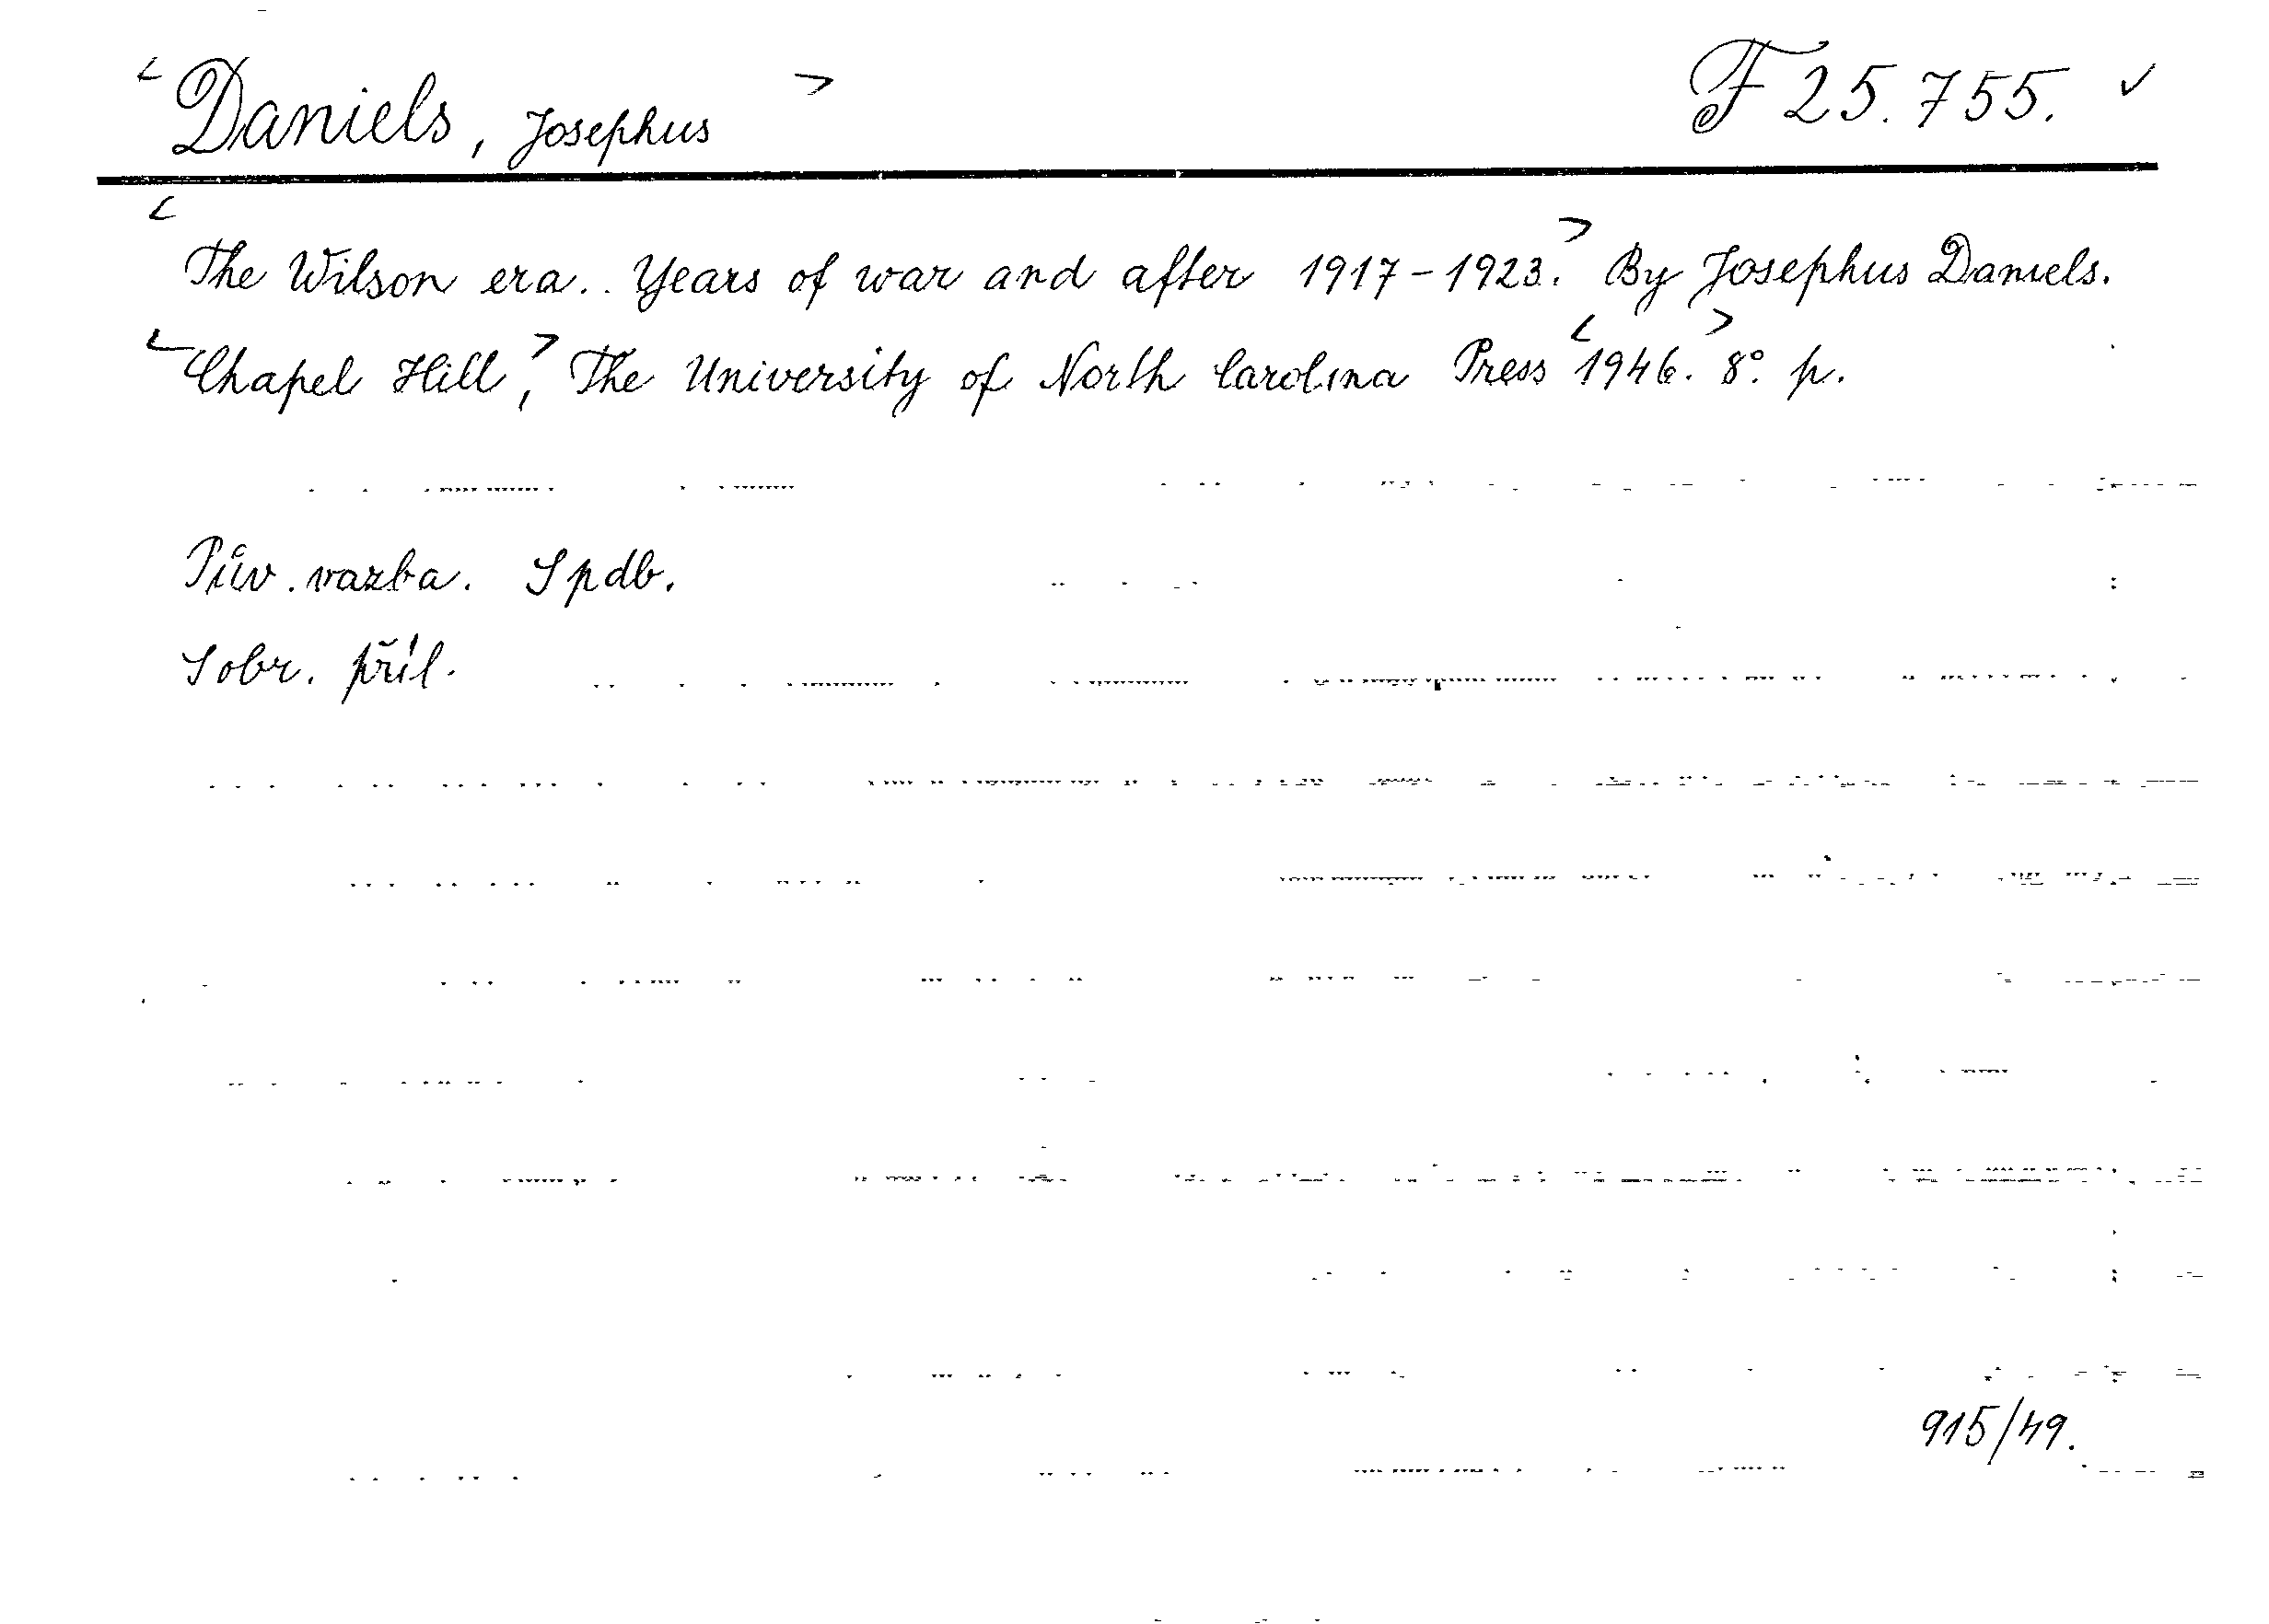 < Daniels, Josephus > F 25.755. ✓
< The Wilson era.. Years of war and after 1917-1923. > By Josephus Daniels.
< Chapel Hill, > The University of North Carolina Press < 1946. > 8° p.
Pův. vazba. Spdb.
S obr. příl.
915/49.